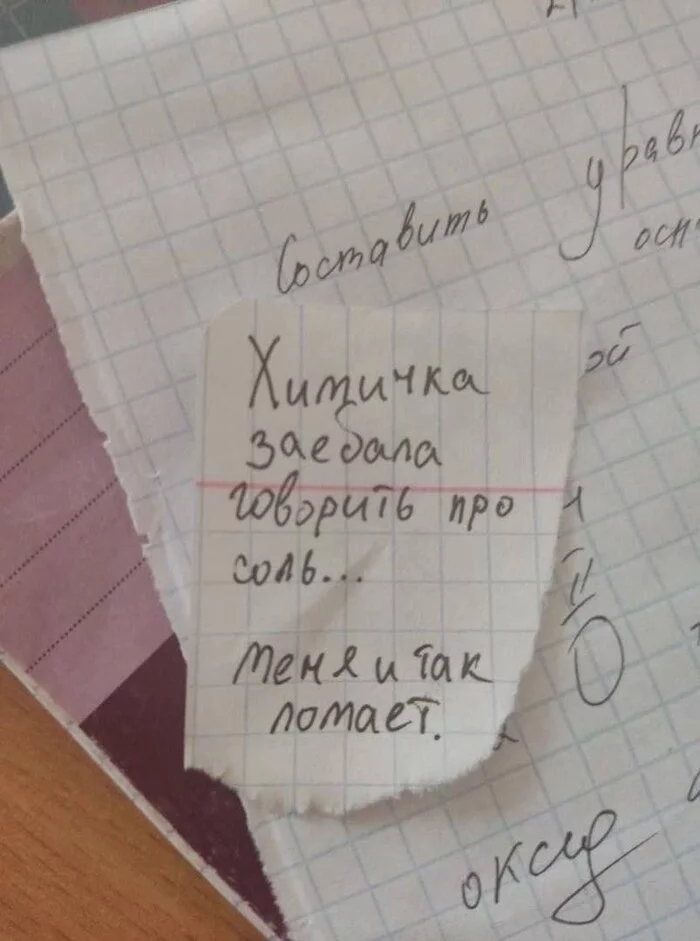 Составить
Химичка
заебала
говорить про
соль...
меня и так
ломает.
оксид